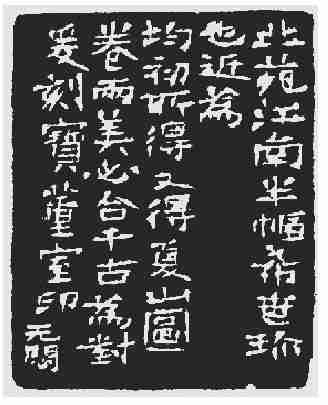 北苑江南半幅希世珍
也近為
均初所得又得夏山圖
卷兩美必合千古為對
爰刻寶董室印无悶